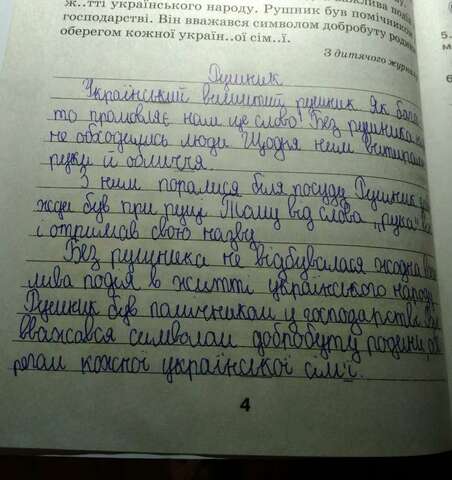 ж..тті українського народу. Рушник був помічником
господарстві. Він вважався символом добробуту родин
оберегом кожної україн..ої сім..ї.
З дитячого журна
5.
м
6
Рушник
Український вишитий рушник Як бага
то промовляє нам це слово! Без рушника н
не обходились люди Щодня ним витирали
руки й обличчя.
З ним поралися біля посуду Рушник
жди був при руці. Тому від слова "рука" ві
і отримав свою назву
Без рушника не відбувалася жодна ва
лива подія в житті українського народу
Рушник був помічником у господарстві Він
вважався символом добробуту родини, об
регом кожної української сім'ї.
4